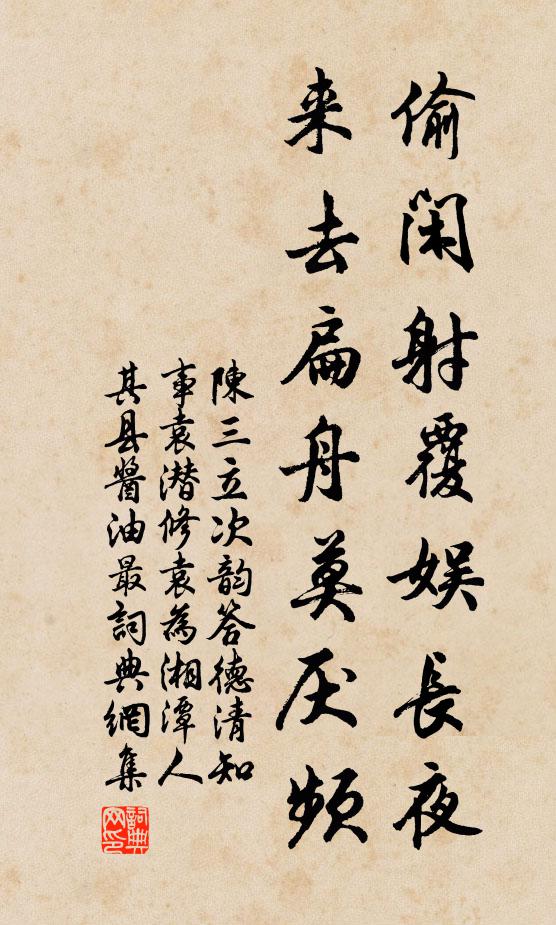 偷闲射覆娱長夜
来去扁舟莫厌频
陳三立次韵答德清知
事袁潜修袁為湘潭人
其县醬油最詞典網集
詞典网印